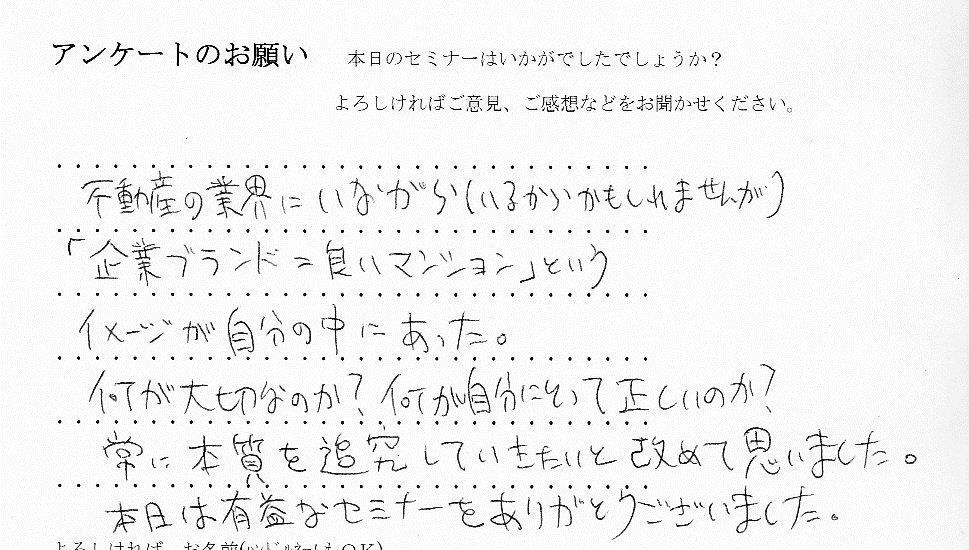 アンケートのお願い 本日のセミナーはいかがでしたでしょうか?
よろしければご意見、ご感想などをお聞かせください。
不動産の業界にいながら(いるからかもしれませんが)
「企業ブランド=良いマンション」という
イメージが自分の中にあった。
何が大切なのか?何が自分にとって正しいのか?
常に本質を追究していきたいと改めて思いました。
本日は有益なセミナーをありがとうございました。
よろしければ、お名前(ハンドルネームもOK)